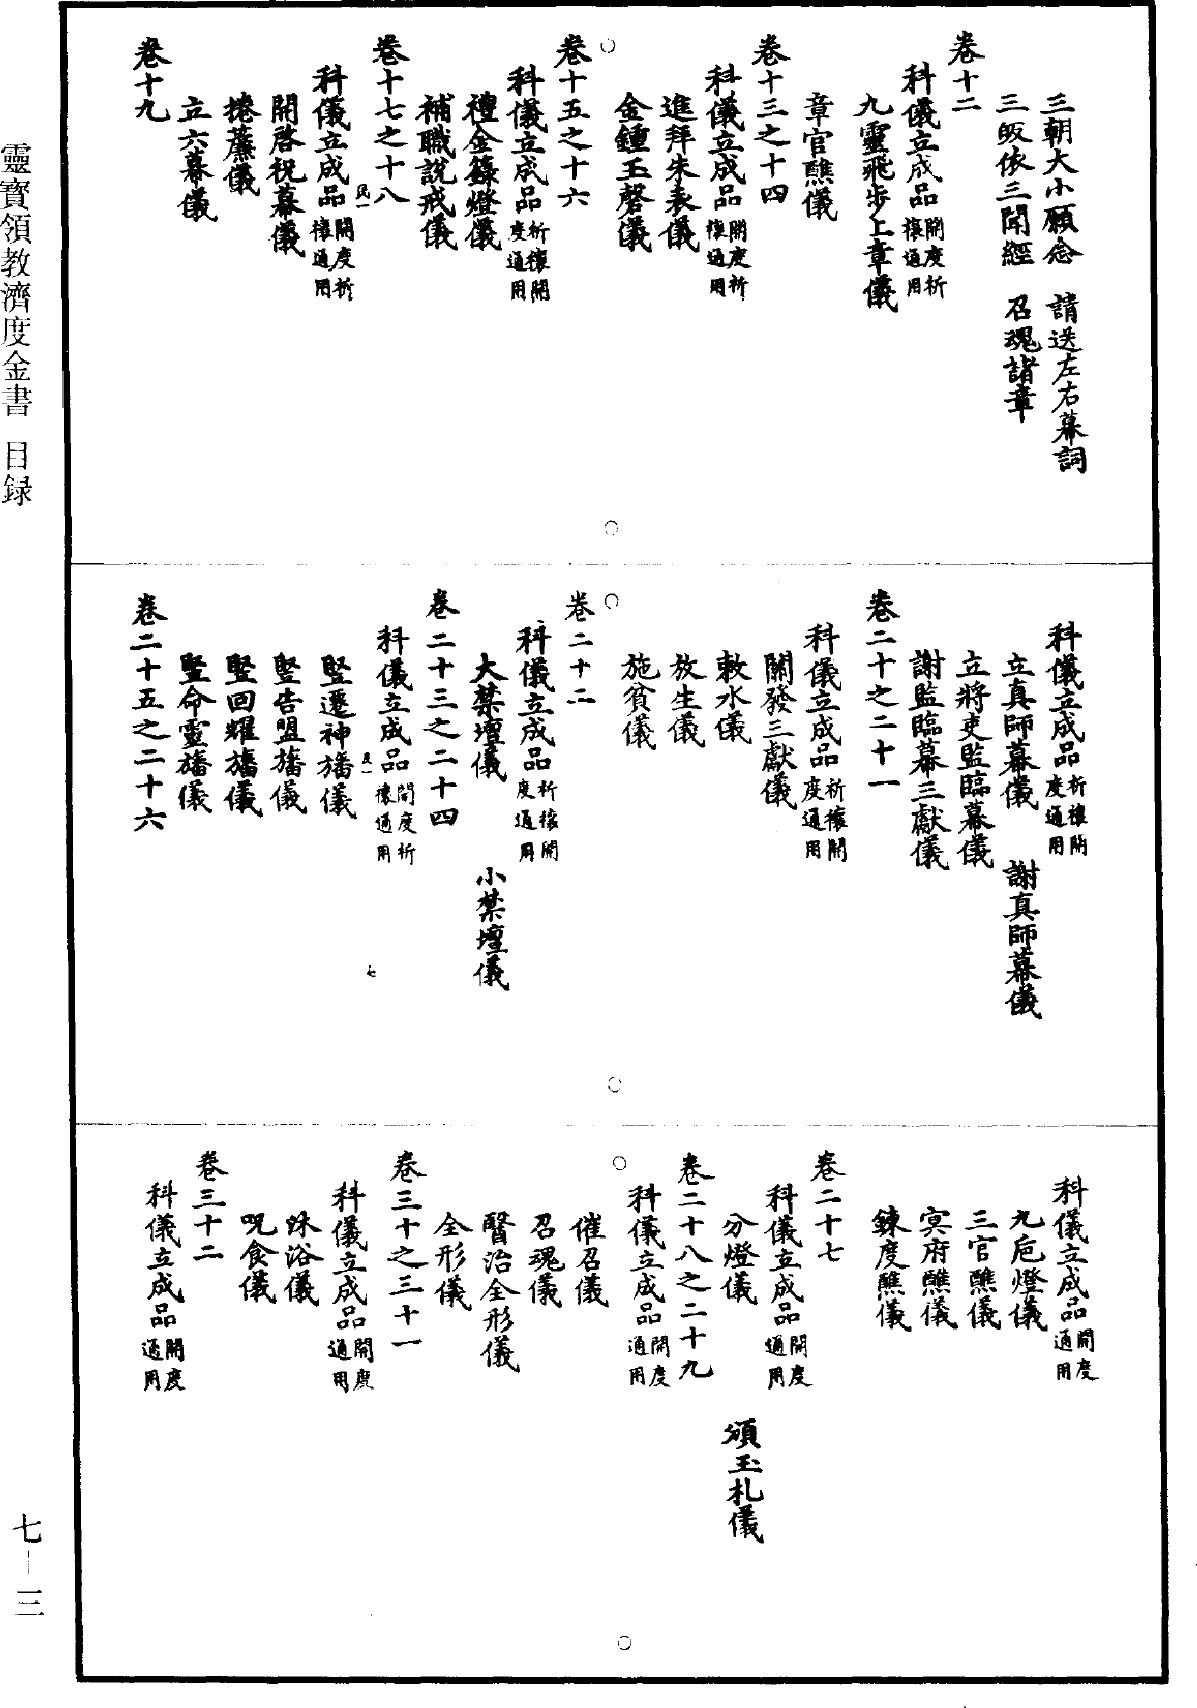 三朝大小願念　請送左右幕詞
三皈依三聞經　召魂諸章
卷十二
科儀立成品開度祈禳通用
九靈飛步上章儀
章官醮儀
卷十三之十四
科儀立成品開度祈禳通用
進拜朱表儀
金鍾玉磬儀
卷十五之十六
科儀立成品祈禳開度通用
禮金籙燈儀
補職說戒儀
卷十七之十八
科儀立成品開度祈禳通用
開啓祝幕儀
捲簾儀
立六幕儀
卷十九
科儀立成品祈禳開度通用
立真師幕儀　謝真師幕儀
立將吏監臨幕儀
謝監臨幕三獻儀
卷二十之二十一
科儀立成品祈禳開度通用
關發三獻儀
敕水儀
放生儀
施貧儀
卷二十二
科儀立成品祈禳開度通用
大禁壇儀　小禁壇儀
卷二十三之二十四
科儀立成品開度祈禳通用
竪遷神旛儀
竪告盟旛儀
竪回耀旛儀
竪命靈旛儀
卷二十五之二十六
科儀立成品開度通用
九巵燈儀
三官醮儀
冥府醮儀
鍊度醮儀
卷二十七
科儀立成品開度通用
分燈儀　頒玉札儀
卷二十八之二十九
科儀立成品開度通用
催召儀
召魂儀
醫治全形儀
全形儀
卷三十之三十一
科儀立成品開度通用
沐浴儀
呪食儀
卷三十二
科儀立成品開度通用
靈寶領教濟度金書　目録
七－三